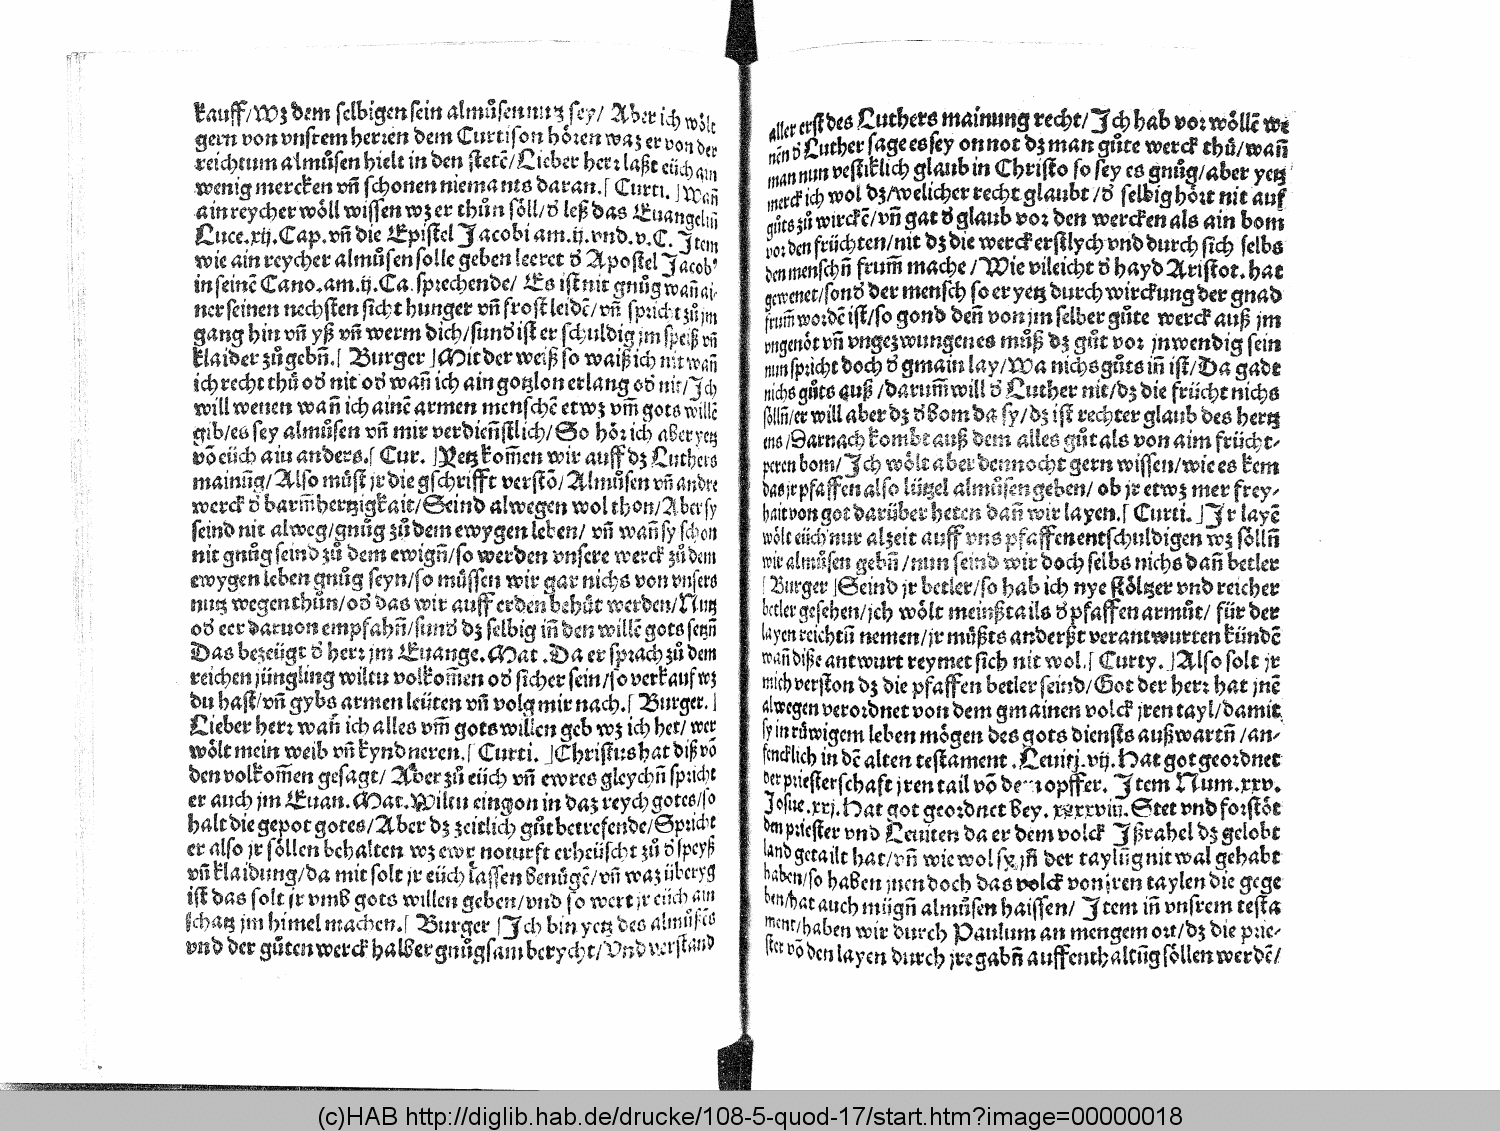 kauff/wz dem selbigen sein almůsen nutz sey/ Aber ich wölt
gern von vnsrem herren dem Curtison hören waz er von der
reichtum almůsen hielt in den stetē/Lieber herr laßt eüch ain
wenig mercken vn̄ schonen niemants daran.[ Curti. ]Wan̄
ain reycher wöll wissen wz er thůn söll/d̕ leß das Euangeliū
Luce.xij.Cap.vn̄ die Epistel Jacobi am.ij.vnd.v.C. Item
wie ain reycher almůsen solle geben leeret d̕ Apostel Jacob'
in seinē Cano.am.ij.Ca.sprechende/ Es ist nit gnůg wan̄ ai-
ner seinen nechsten sicht hunger vn̄ frost leidē/vn̄ spricht zů jm
gang hin vn̄ yß vn̄ werm dich/sund̕ ist er schuldig jm speiß vn̄
klaider zůgebn̄.[ Burger ]Mit der weiß so waiß ich nit wan̄
ich recht thů od̕ nit od̕ wan̄ ich ain gotzlon erlang od̕ nit/Ich
will wenen wan̄ ich ainē armen menschē etwz vm̄ gots willē
gib/es sey almůsen vn̄ mir verdien̄stlich/So hör ich aber yetz
vō eüch ain anders.[ Cur. ]Yetz kom̄en wir auff dz Luthers
mainūg/Also můst jr die gschrifft verstō/Almůsen vn̄ andre
werck d̕ barm̄hertzigkait/Seind alwegen wol thon/Aber sy
seind nit alweg/gnůg zů dem ewygen leben/ vn̄ wan̄ sy schon
nit gnůg seind zů dem ewign̄/so werden vnsere werck zů dem
ewygen leben gnůg seyn/so müssen wir gar nichs von vnsers
nutz wegen thůn/od̕ das wir auff erden behůt werden/Nutz
od̕ eer daruon empfahn̄/sund̕ dz selbig in̄ den willē gots setzn̄
Das bezeügt d̕ herr jm Euange.Mat.Da er sprach zů dem
reichen jüngling wiltu volkom̄en od̕ sicher sein/so verkauf wz
du hast/vn̄ gybs armen leüten vn̄ volg mir nach.[ Burger.]
Lieber herr wan̄ ich alles vm̄ gots willen geb wz ich het/ wer
wölt mein weib vn̄ kynd neren.[ Curti. ]Christus hat diß vō
den volkom̄en gesagt/ Aber zů eüch vn̄ ewres gleychn̄ spricht
er auch jm Euan.Mat.Wiltu eingon in daz reych gotes/so
halt die gepot gotes/Aber dz zeitlich gůt betrefende/Spricht
er also jr söllen behalten wz ewr noturft erheüscht zů d̕ speyß
vn̄ klaidung/da mit solt jr eüch lassen benůgē/vn̄ waz überyg
ist das solt jr vmb gots willen geben/vnd so wert jr eüch ain
schatz jm himel machen.[ Burger ]Ich bin yetz des almůsēs
vnd der gůten werck halber gnůgsam berycht/Vnd verstand
aller erst des Luthers mainung recht/Ich hab vor wöllē we
nēn d̕ Luther sage es sey on not dz man gůte werck thů/wan̄
man nun vestiklich glaub in Christo so sey es gnůg/aber yetz
merck ich wol dz/welicher recht glaubt /d̕ selbig hört nit auf
gůts zů wirckē/vn̄ gat d̕ glaub vor den wercken als ain bom
vor den früchten/nit dz die werck erstlych vnd durch sich selbs
den menschn̄ frum̄ mache /Wie vileicht d̕ hayd Aristot.hat
gewenet/sond̕ der mensch so er yetz durch wirckung der gnad
frum̄ wordē ist/so gond den̄ von jm selber gůte werck auß jm
vngenöt vn̄ vngezwungenes můß dz gůt vor jnwendig sein
nun spricht doch d̕ gmain lay/Wa nichs gůts in̄ ist/Da gadt
nichs gůts auß /darum̄ will d̕ Luther nit/dz die frücht nichs
sölln̄/er will aber dz d̕ bom da sy/dz ist rechter glaub des hertz
ens/Darnach kombt auß dem alles gůt als von aim frücht-
peren bom/Ich wölt aber dennocht gern wissen/wie es kem
das jr pfaffen also lützel almůsen geben/ ob jr etwz mer frey-
hait von got darüber heten dan̄ wir layen.[ Curti. ]Ir layē
wölt eüch nur alzeit auff vns pfaffen entschuldigen wz sölln̄
wir almůsen gebn̄ /nun seind wir doch selbs nichs dan̄ betler
[ Burger ]Seind jr betler/so hab ich nye stöltzer vnd reicher
betler gesehen/ich wölt meinßtails d̕ pfaffen armůt/ für der
layen reichtū nemen/jr můßts anderßt verantwurten kündē
wan̄ diße antwurt reymet sich nit wol.[ Curty. ]Also solt jr
mich verston dz die pfaffen betler seind/Got der herr hat jnē
alwegen verordnet von dem gmainen volck jren tayl/damit
sy in růwigem leben mögen des gots diensts außwartn̄ /an-
fencklich in dē alten testament .Leuitj.vij.Hat got geordnet
der priesterschaft jren tail vō de opffer. Item Num.xxv.
Josue.xxj.Hat got geordnet bey. xxxxviii. Stet vnd forstöt
dem priester vnd Leuiten da er dem volck Ißrahel dz gelobt
land getailt hat/vn̄ wie wol sy jn̄ der taylūg nit wal gehabt
haben/so haben jnen doch das volck von jren taylen die gege
ben/hat auch mügn̄ almůsen haissen/ Item in̄ vnsrem testa
ment/haben wir durch Paulum an mengem ort/dz die prie-
ster vō den layen durch jre gabn̄ auffenthaltūg söllen werdē/
(c)HAB http://diglib.hab.de/drucke/108-5-quod-17/start.htm?image=00000018